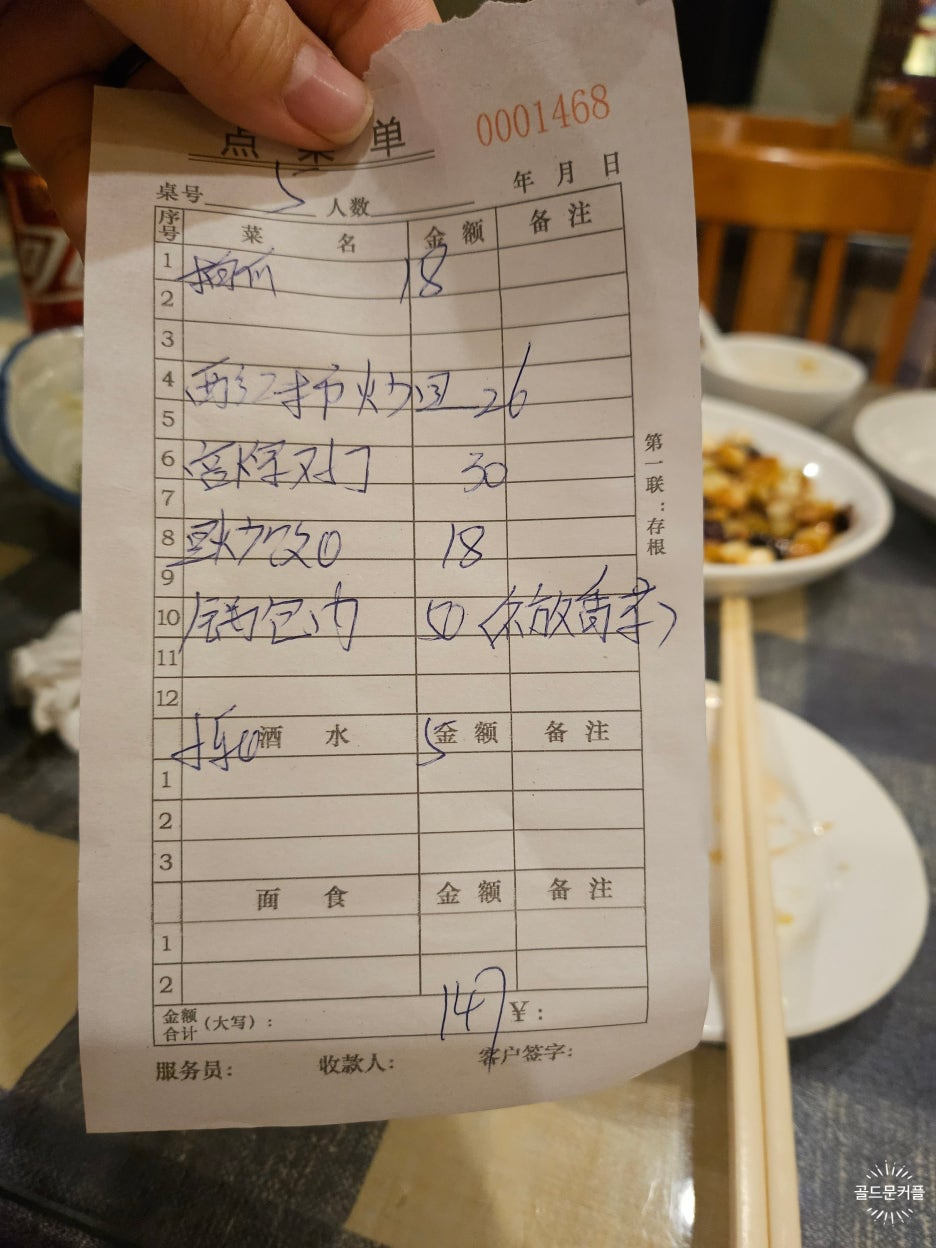 点菜单 0001468
桌号 5 人数 年 月 日
序号 菜 名 金 额 备 注
1 拍瓜 18
2
3
4 西红柿炒 26
5
6 宫保 30
7
8 18
9
10 包肉 50 (不放香菜)
11
12
酒 水 5 金 额 备 注
1
2
3
面 食 金 额 备 注
1
2
金额合计 (大写): 147 ¥:
服务员: 收款人: 客户签字:
第一联:存根
골드문커플